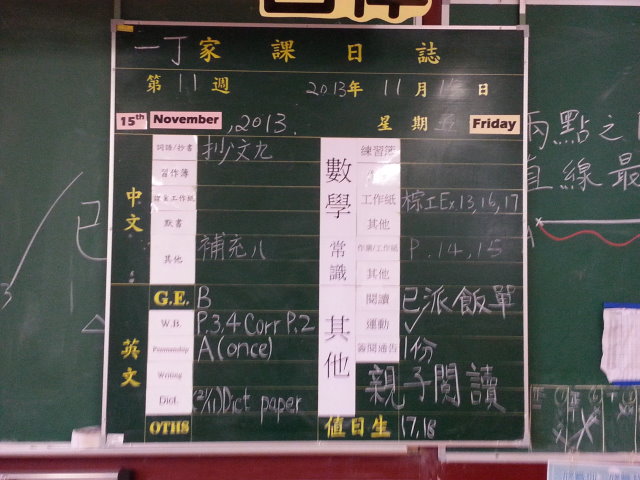 一丁家課日誌
第11週 2013年11月15日
15th November, 2013. 星期五 Friday
中文
詞語/抄書 抄文九
習作簿
默書
其他 補充八
G.E. B
英文
W.B. P.3,4 Corr P.2
Penmanship A (once)
Writing
Dict. (2/11) Dict paper
OTHS
數學
練習簿
工作紙 棕工Ex.13,16,17
其他
常識
作業/工作紙 P.14,15
其他
其他
閱讀 已派飯單
運動 ✓
簽閱通告 1份
親子閱讀
值日生 17,18
兩點之
直線最
A